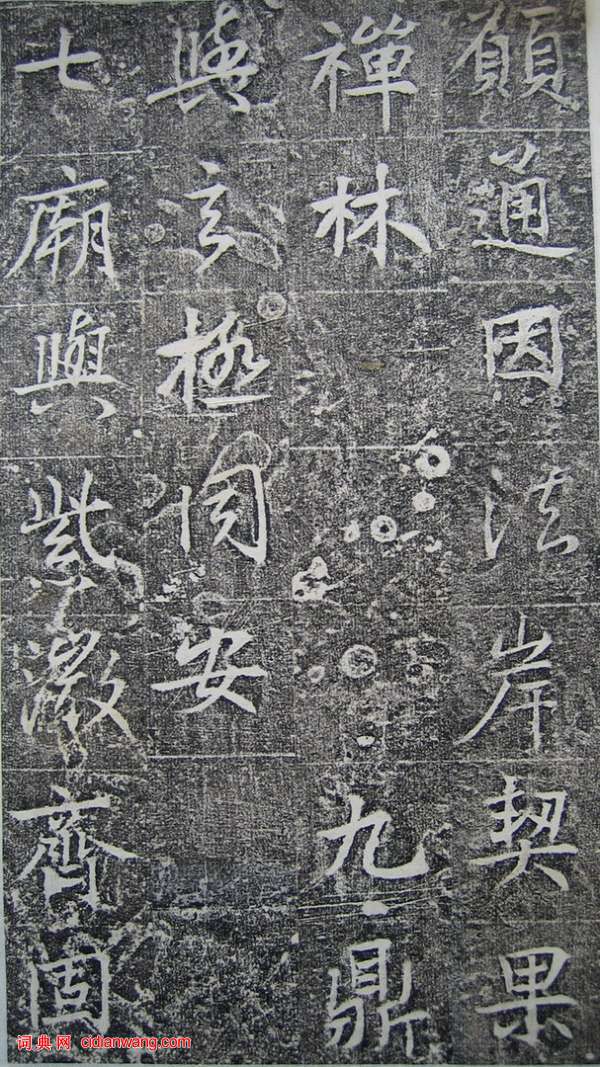 願通因法岸契果
禪林九鼎
與玄極同安
七廟與紫微齊固
词典网 cidianwang.com